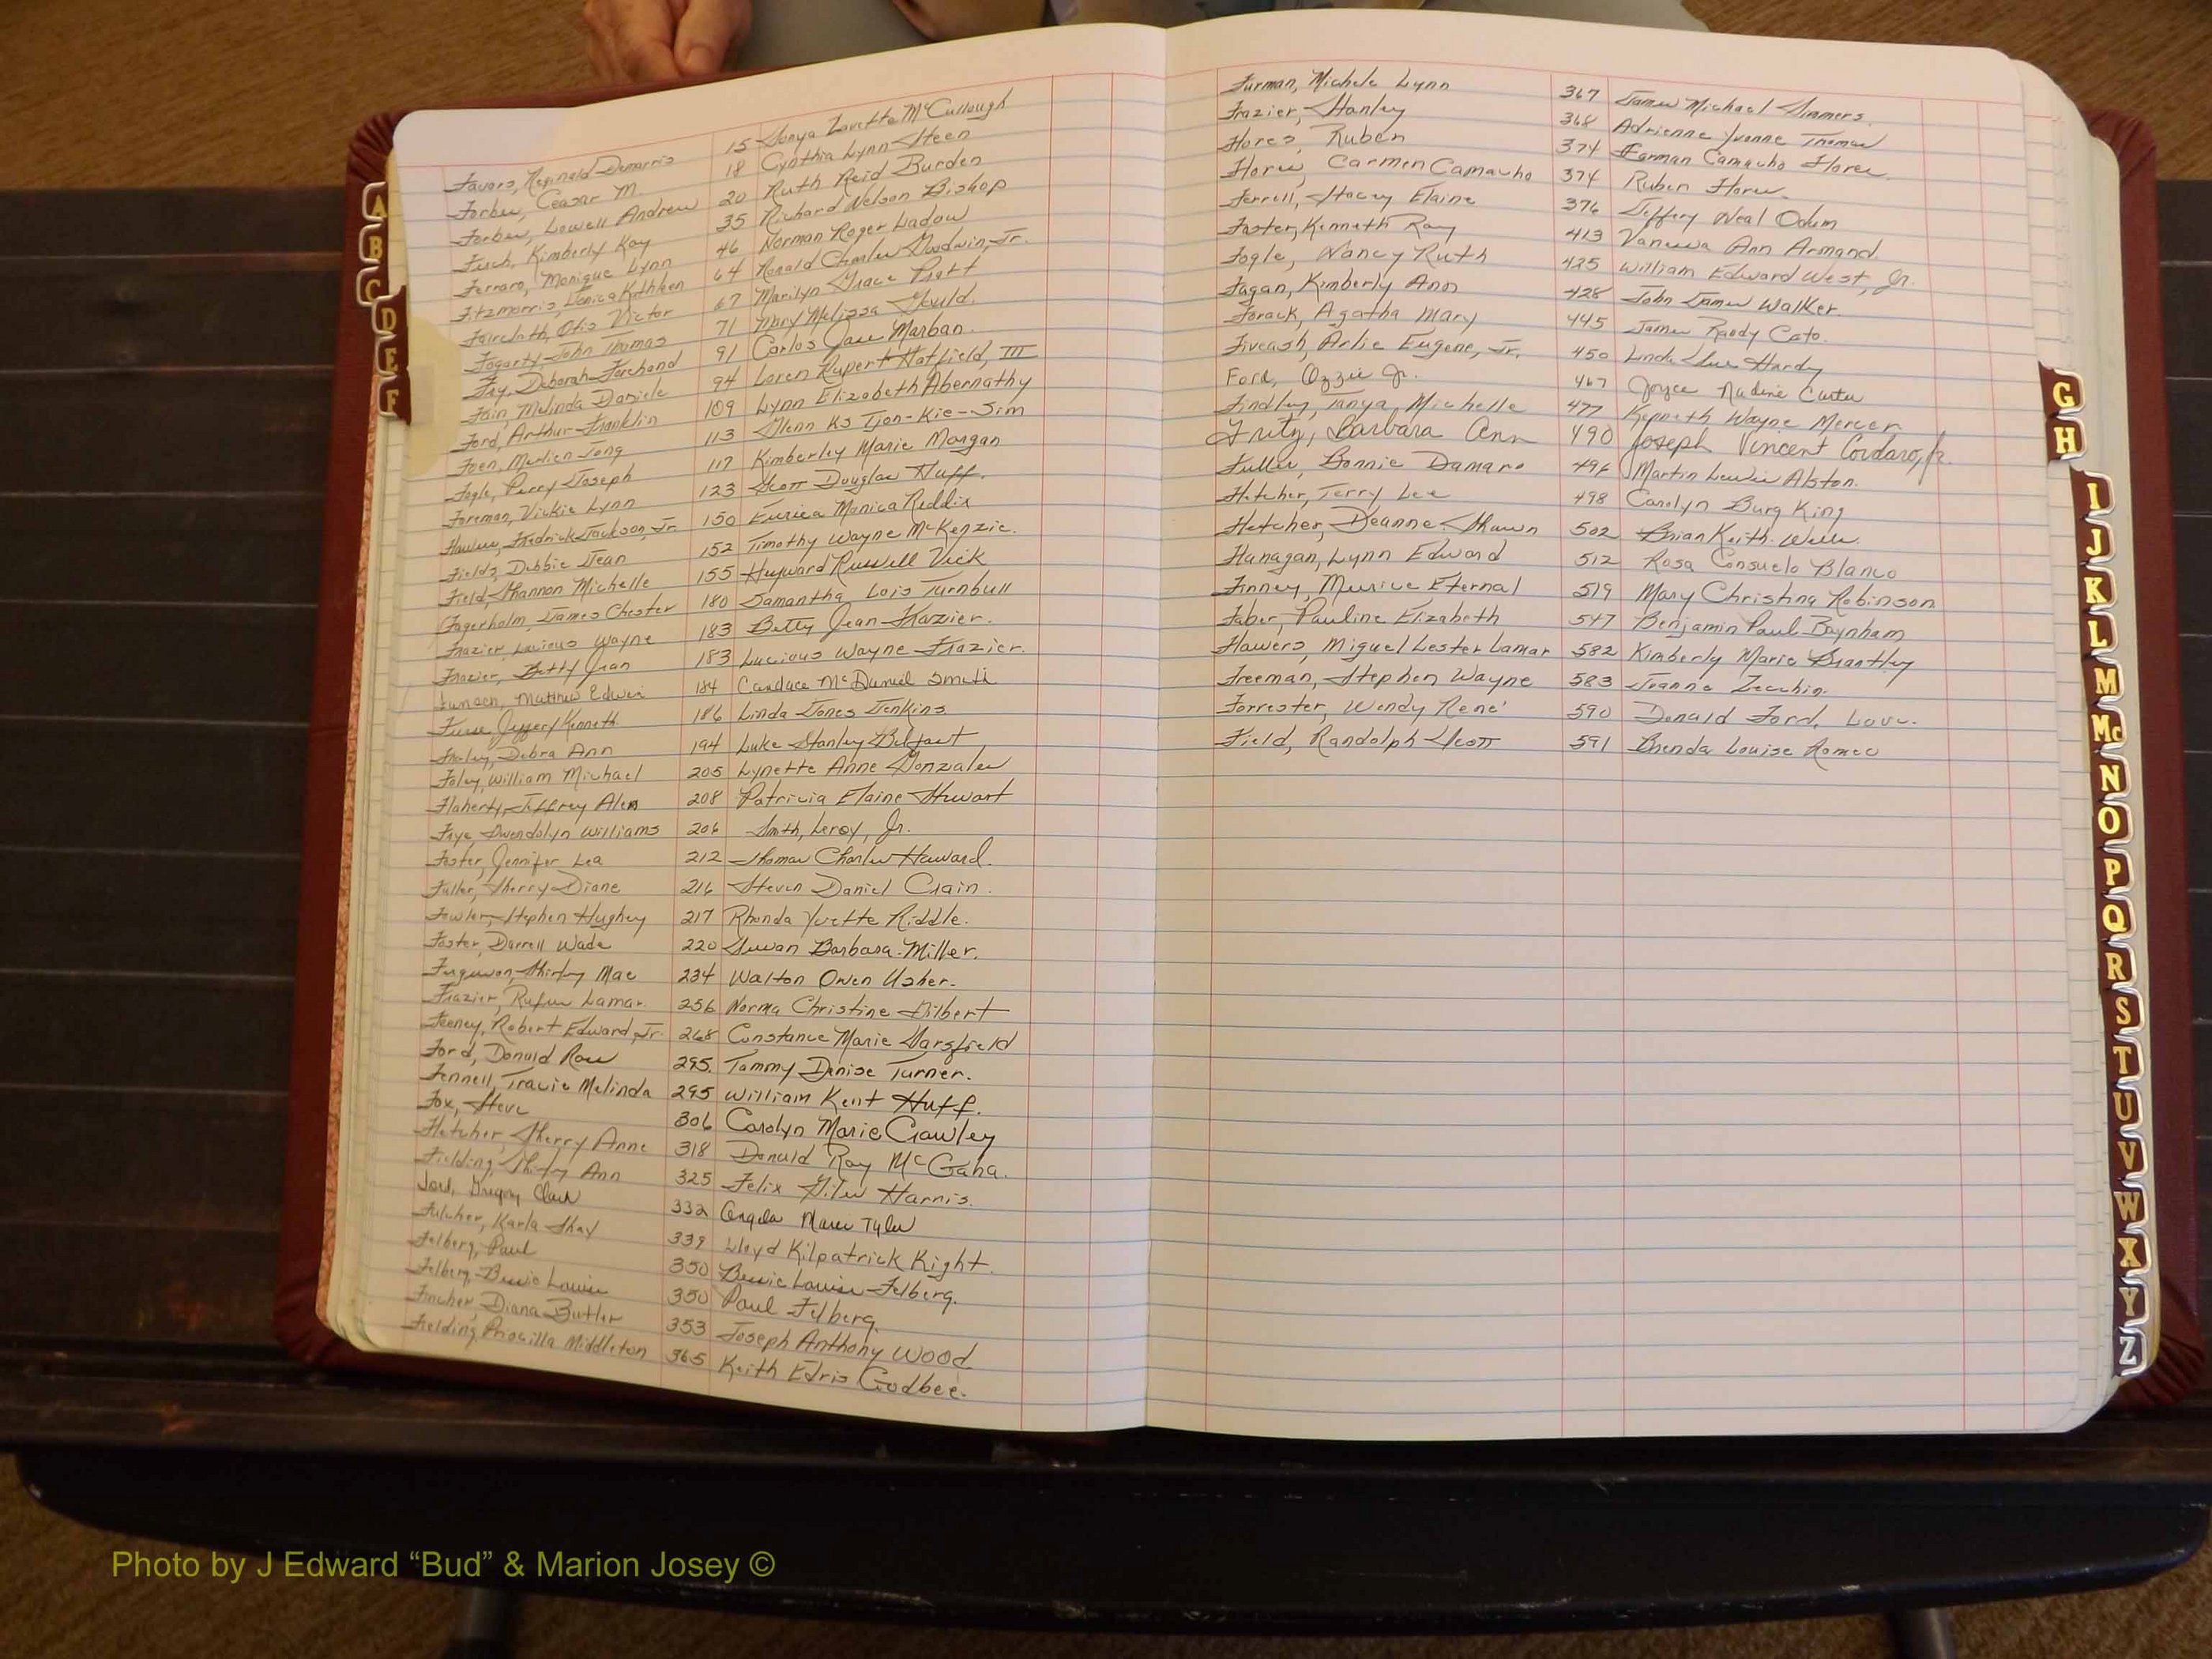 Favors, Reginald Demarris 15 Sonya Lovette McCullough
Forbes, Ceasar M. 18 Cynthia Lynn Steen
Forbes, Lowell Andrew 20 Ruth Reid Burden
Fesch, Kimberly Kay 35 Richard Nelson Bishop
Ferraro, Monique Lynn 46 Norman Roger Ladow
Fitzmorris, Kathleen 64 Ronald Charles Goodwin, Jr.
Faircloth, Otis Victor 67 Marilyn Grace Pratt
Fogarty, John Thomas 71 Mary Melissa Gould.
Fay, Deborah Forehand 91 Carlos Jose Marban.
Fain, Melinda Daniele 94 Loren Rupert Hatfield, III
Ford, Arthur Franklin 109 Lynn Elizabeth Abernathy
Foen, Merlien Tong 113 Glenn Ks Tjon-Kie-Sim
Fogle, Perry Joseph 117 Kimberley Marie Morgan
Foreman, Vickie Lynn 123 Scott Douglas Huff.
Fredrick Jackson, Jr. 150 Monica Reddix
Fields, Debbie Jean 152 Timothy Wayne McKenzie.
Field, Shannon Michelle 155 Hayward Russell Vick
Fagerholm, James Chester 180 Samantha Lois Turnbull
Frazier, Lucious Wayne 183 Betty Jean Frazier.
Frazier, Betty Jean 183 Lucious Wayne Frazier.
Matthew Edwin 184 Candace McDaniel Smith
Furse, Jeffery Kenneth 186 Linda Jones Jenkins
Fraley, Debra Ann 194 Luke Stanley Belfast
Foley, William Michael 205 Lynette Anne Gonzales
Flaherty, Jeffrey Alen 208 Patricia Elaine Stewart
Faye, Gwendolyn Williams 206 Smith, Leroy, Jr.
Foster, Jennifer Lea 212 Thomas Charles Howard.
Fuller, Sherry Diane 216 Steven Daniel Crain.
Fowler, Stephen Hughey 217 Rhonda Yvette Riddle.
Foster, Darrell Wade 220 Susan Barbara Miller.
Ferguson, Shirley Mae 234 Walton Owen Usher.
Frazier, Rufus Lamar. 256 Norma Christine Dilbert
Feeney, Robert Edward, Jr. 268 Constance Marie Garsfield
Ford, Donald Ross 295. Tammy Denise Turner.
Fennell, Tracie Melinda 295 William Kent Huff.
Fox, Steve 306 Carolyn Marie Crawley
Fletcher, Sherry Anne 318 Donald Ray McGaha.
Fielding, Shirley Ann 325 Felix Giles Harris.
Gregory Clark 332 Angela Marie Tyler
Fulcher, Karla Shay 339 Lloyd Kilpatrick Kight.
Felberg, Paul 350 Bessie Louise Felberg.
Felberg, Bessie Louise 350 Paul Felberg.
Fincher, Diana Butler 353 Joseph Anthony Wood
Fielding, Priscilla Middleton 365 Keith Edris Godbee.
Furman, Michele Lynn 367 James Michael Simmers.
Frazier, Stanley 368 Adrienne Yvonne Thomas
Flores, Ruben 374 Carmen Camacho Flores.
Flores, Carmen Camacho 374 Ruben Flores.
Ferrell, Stacey Elaine 376 Jeffery Neal Odum
Foster, Kenneth Ray 413 Vanessa Ann Armand.
Fogle, Nancy Ruth 425 William Edward West, Jr.
Fagan, Kimberly Ann 428 John James Walker.
Forack, Agatha Mary 445 James Randy Cato.
Fiveash, Arlie Eugene, Jr. 450 Linda Sue Hardy
Ford, Ozzie Jr. 467 Joyce Nadine Carter
Findley, Tanya Michelle 477 Kenneth Wayne Mercer
Fritz, Barbara Ann 490 Joseph Vincent Cordaro, Jr.
Fuller, Bonnie Damaro 496 Martin Lewis Alston.
Fletcher, Terry Lee 498 Carolyn Burg King
Fletcher, Deanne Shawn 502 Brian Keith Wells.
Flanagan, Lynn Edward 512 Rosa Consuelo Blanco
Finney, Maurice Eternal 519 Mary Christina Robinson
Faber, Pauline Elizabeth 547 Benjamin Paul Baynham
Flowers, Miguel Lester Lamar 582 Kimberly Marie Brantley
Freeman, Stephen Wayne 583 Joanne Zecchin.
Forrester, Wendy Rene' 590 Donald Ford, Love.
Field, Randolph Scott 591 Brenda Louise Romeo
A
B
C
D
E
F
G
H
I
J
K
L
M
Mc
N
O
P
Q
R
S
T
U
V
W
X
Y
Z
Photo by J Edward “Bud” & Marion Josey ©